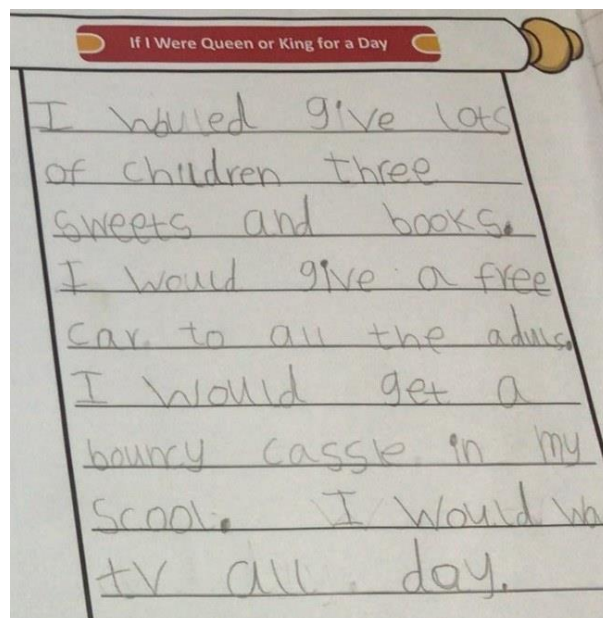 If I Were Queen or King for a Day
I wouled give lots
of children three
sweets and books.
I would give a free
car to all the aduls.
I would get a
bouncy cassle in my
scool. I would
tv all day.